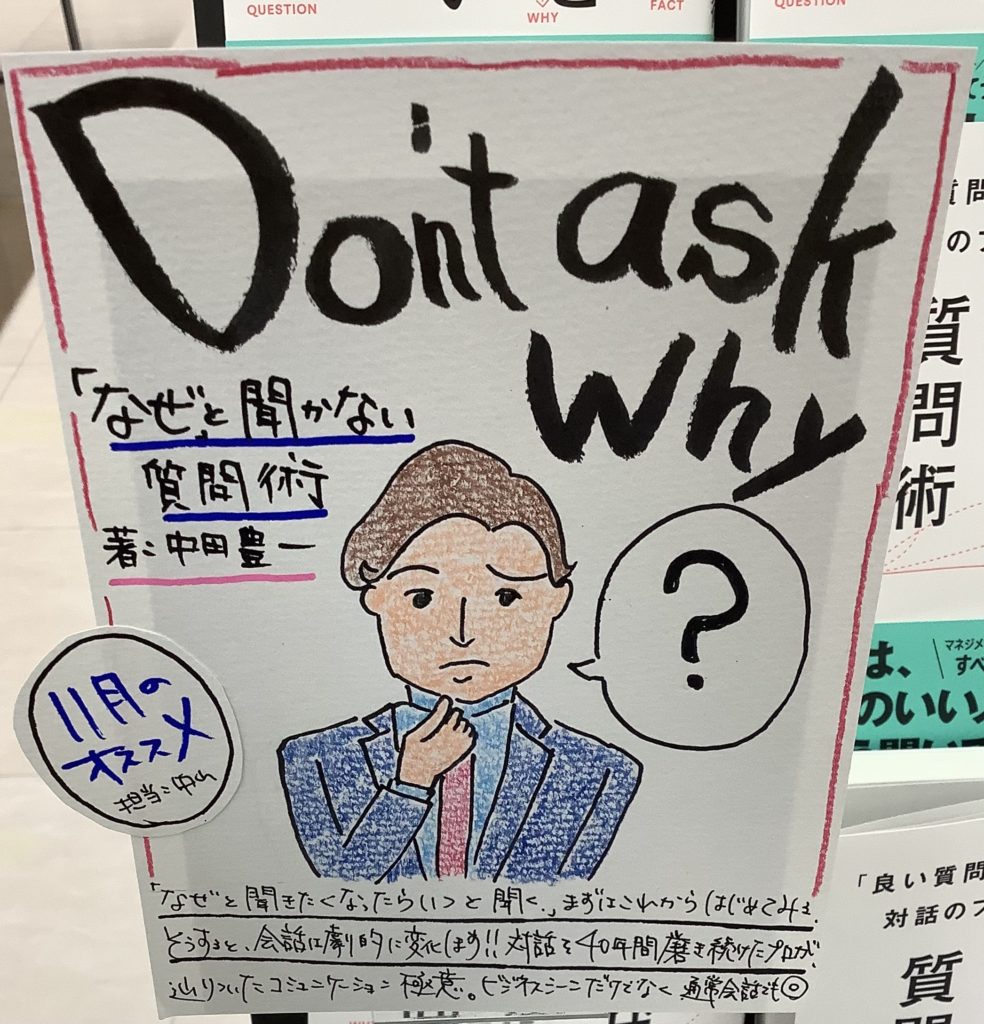 QUESTION
WHY
FACT
QUESTION
Don't ask
Why
「なぜ」と聞かない
質問術
著:中田豊一
?
11月の
オススメ
担当:中山
「なぜと聞きたくなったらいつと聞く。」まずはこれからはじめてみる。
そうすると、会話は劇的に変化します!!対話を40年間磨き続けたプロが、
辿りついたコミュニケーション極意。ビジネスシーンだけでなく通常会話でも◎
質問
のプ
質問術
は、
マネジメ
すべ
のいいソ
「良い質問
対話のプ
質